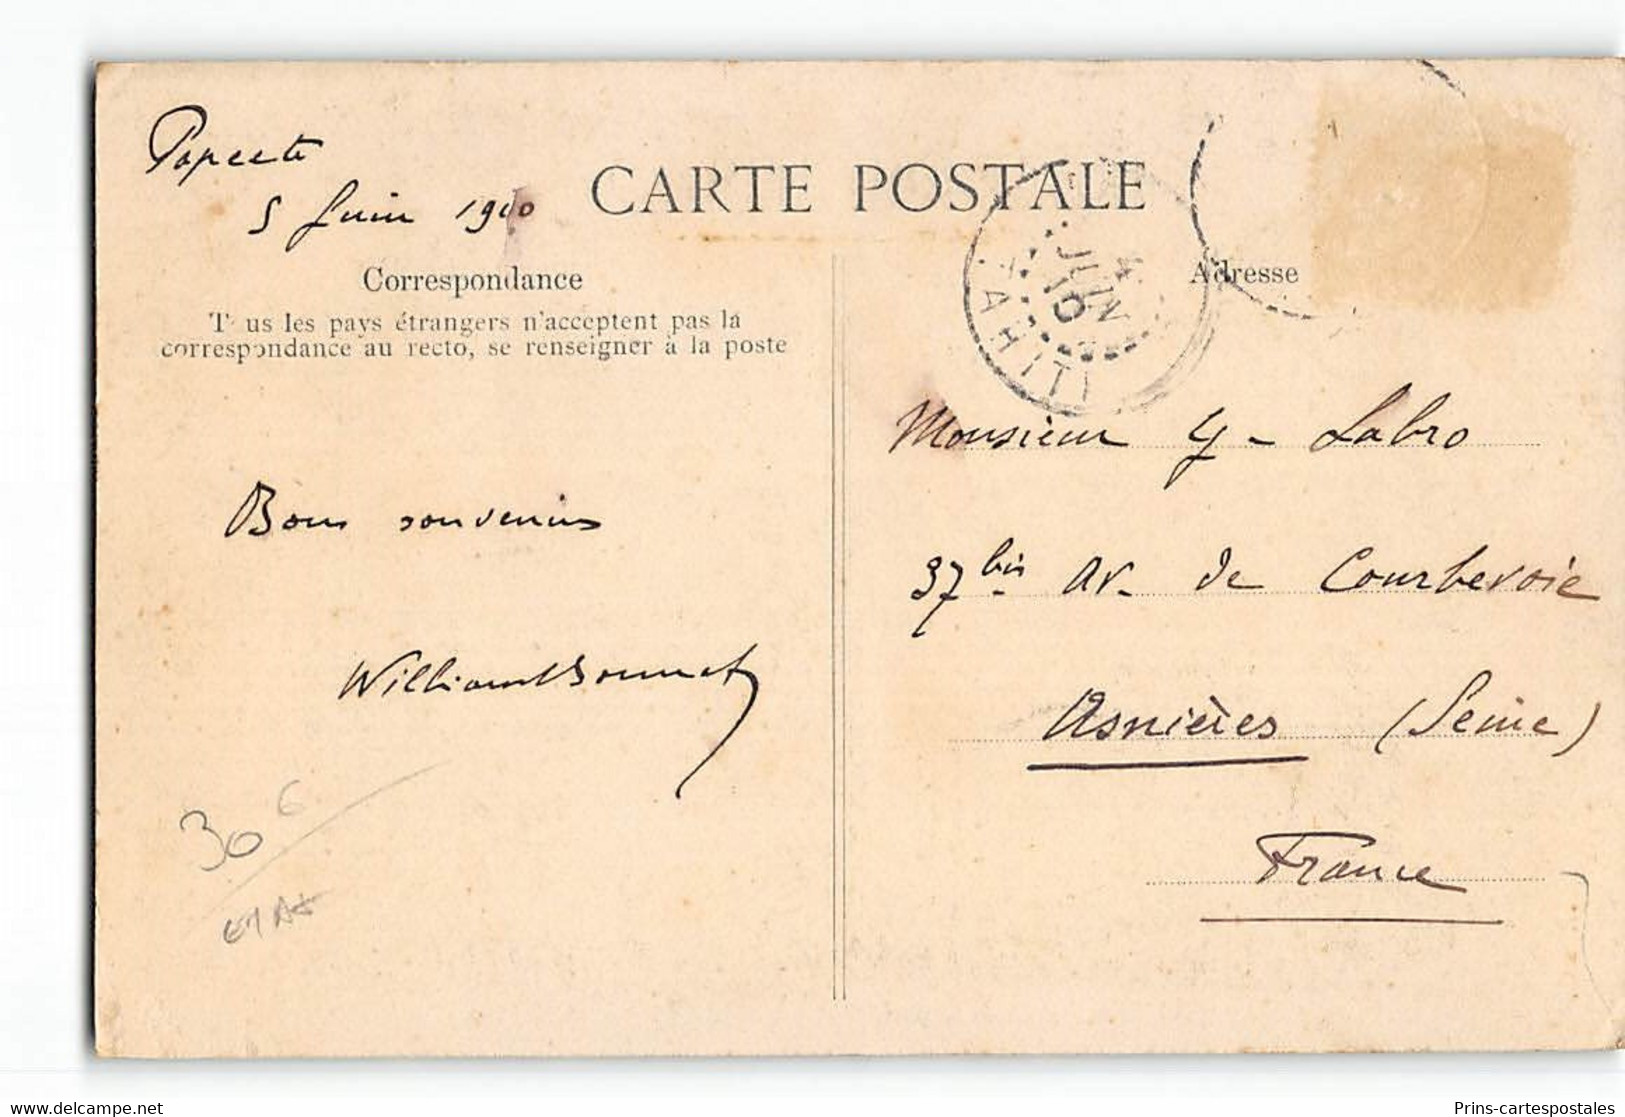 Papeete
5 Juin 1910
CARTE POSTALE
Correspondance
Tous les pays étrangers n'acceptent pas la
correspondance au recto, se renseigner à la poste
Adresse
4 JUIN 10
TAHITI
Bons souvenirs
William Bonnet
Monsieur G- Labro
37 bis Av. de Courbevoie
Asnières (Seine)
France
30 €
delcampe.net
Prins-cartespostales